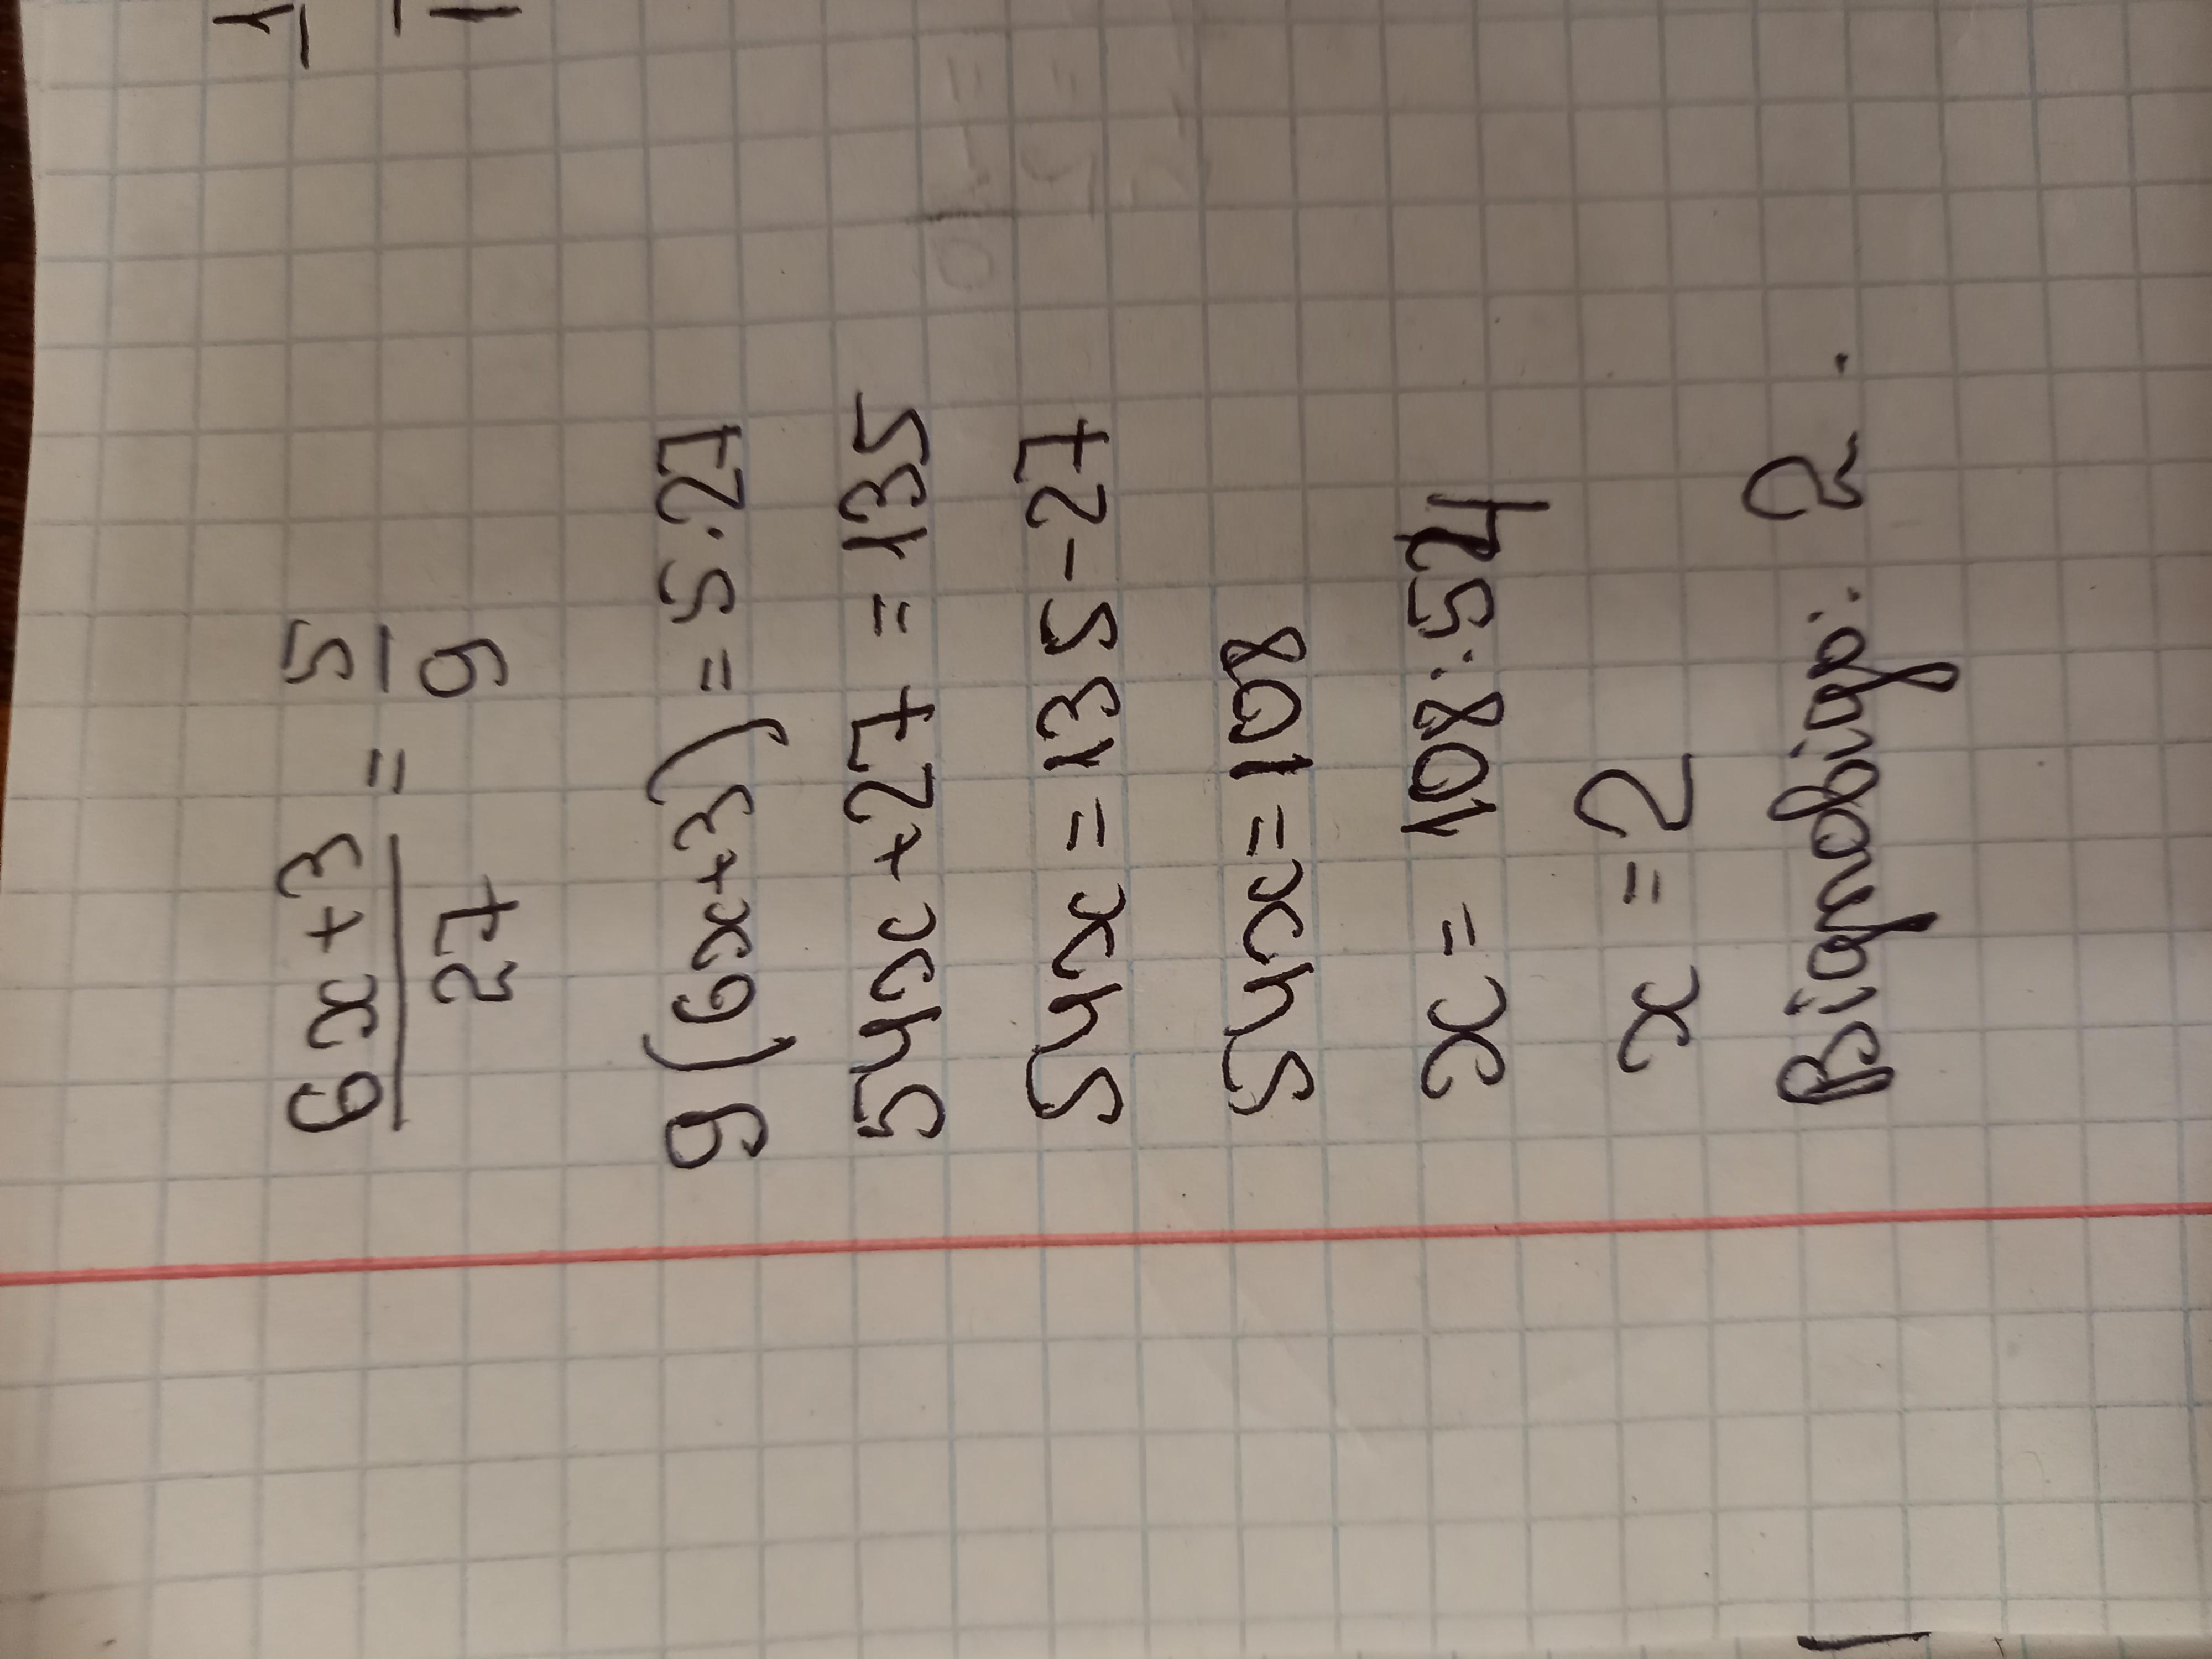 6x+3/27 = 5/9
9(6x+3) = 5·27
54x+27 = 135
54x = 135-27
54x = 108
x = 108:54
x = 2
Відповідь: 2.